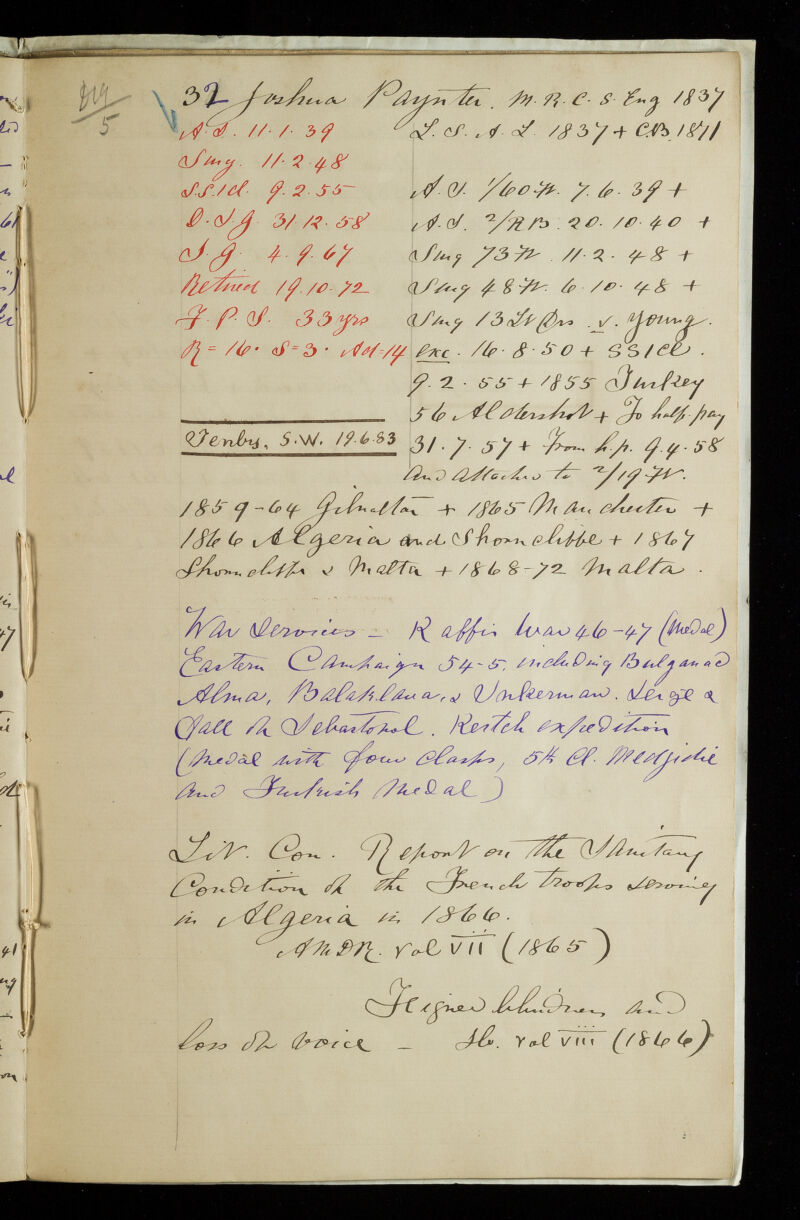 5
32 Joshua Paynter. M.R.C.S. Eng 1837
L.S.A.L. 1837 + C.B. 1871
A.S. 11.1.39
Surg. 11.2.48
S.S. 1cl. 9.2.55
D.I.G. 31.12.58
I.G. 4.9.67
Retired 19.10.72
F.P.S. 33 yrs
R=16. S=3. Ad=14
Tenby, S.W. 19.6.83
A.S. 1/60 Ft. 7.6.39 +
A.S. 2/RB. 20.10.40 +
Surg 73 Ft. 11.2.48 +
Surg 48 Ft. 6.10.48 +
Surg 13 Lt Drs. v. Young.
exc. 16.8.50 + SS1cl.
9.2.55 + 1855 Turkey
56 Aldershot + To half-pay
31.7.57 + From h.p. 9.4.58
and attached to 2/19 Ft.
1859-64 Gibraltar + 1865 Manchester +
1866 Algeria and Shorncliffe + 1867
Shorncliffe & Malta + 1868-72 Malta.
War Services - Kaffir War 46-47 (Medal)
Eastern Campaign 54-5, including Bulganac
Alma, Balaklava, & Inkerman. Seige &
Fall of Sebastopol. Kertch expedition
(Medal with four clasps, 5th Cl. Medjidie
and Turkish Medal)
Lit. Con. Report on the Sanitary
Condition of the French troops serving
in Algeria in 1866.
AMDR. Vol VII (1865)
Feigned blindness and
loss of voice - Ib. Vol VIII (1866)